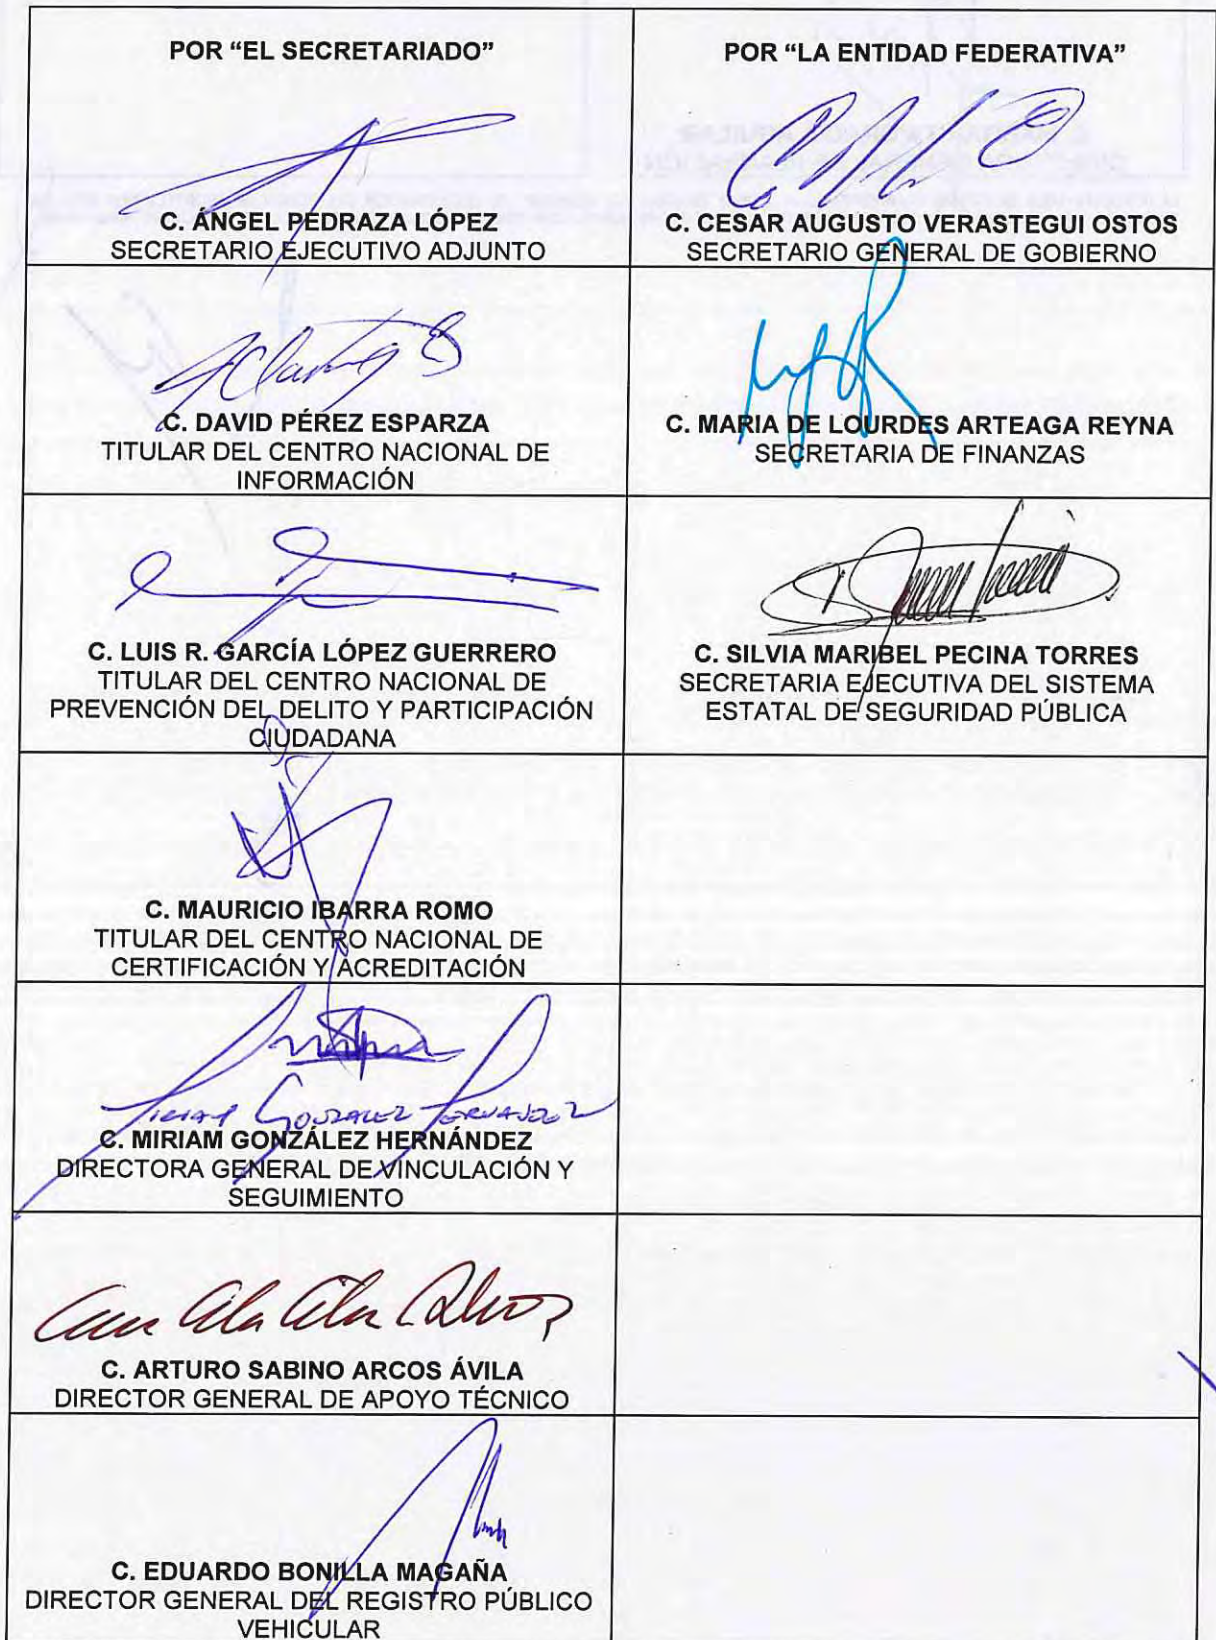 POR “EL SECRETARIADO”
POR “LA ENTIDAD FEDERATIVA”
C. ÁNGEL PEDRAZA LÓPEZ
SECRETARIO EJECUTIVO ADJUNTO
C. CESAR AUGUSTO VERASTEGUI OSTOS
SECRETARIO GENERAL DE GOBIERNO
C. DAVID PÉREZ ESPARZA
TITULAR DEL CENTRO NACIONAL DE
INFORMACIÓN
C. MARIA DE LOURDES ARTEAGA REYNA
SECRETARIA DE FINANZAS
C. LUIS R. GARCÍA LÓPEZ GUERRERO
TITULAR DEL CENTRO NACIONAL DE
PREVENCIÓN DEL DELITO Y PARTICIPACIÓN
CIUDADANA
C. SILVIA MARIBEL PECINA TORRES
SECRETARIA EJECUTIVA DEL SISTEMA
ESTATAL DE SEGURIDAD PÚBLICA
C. MAURICIO IBARRA ROMO
TITULAR DEL CENTRO NACIONAL DE
CERTIFICACIÓN Y ACREDITACIÓN
MIRIAM GONZALEZ HERNANDEZ
C. MIRIAM GONZÁLEZ HERNÁNDEZ
DIRECTORA GENERAL DE VINCULACIÓN Y
SEGUIMIENTO
C. ARTURO SABINO ARCOS ÁVILA
DIRECTOR GENERAL DE APOYO TÉCNICO
C. EDUARDO BONILLA MAGAÑA
DIRECTOR GENERAL DEL REGISTRO PÚBLICO
VEHICULAR